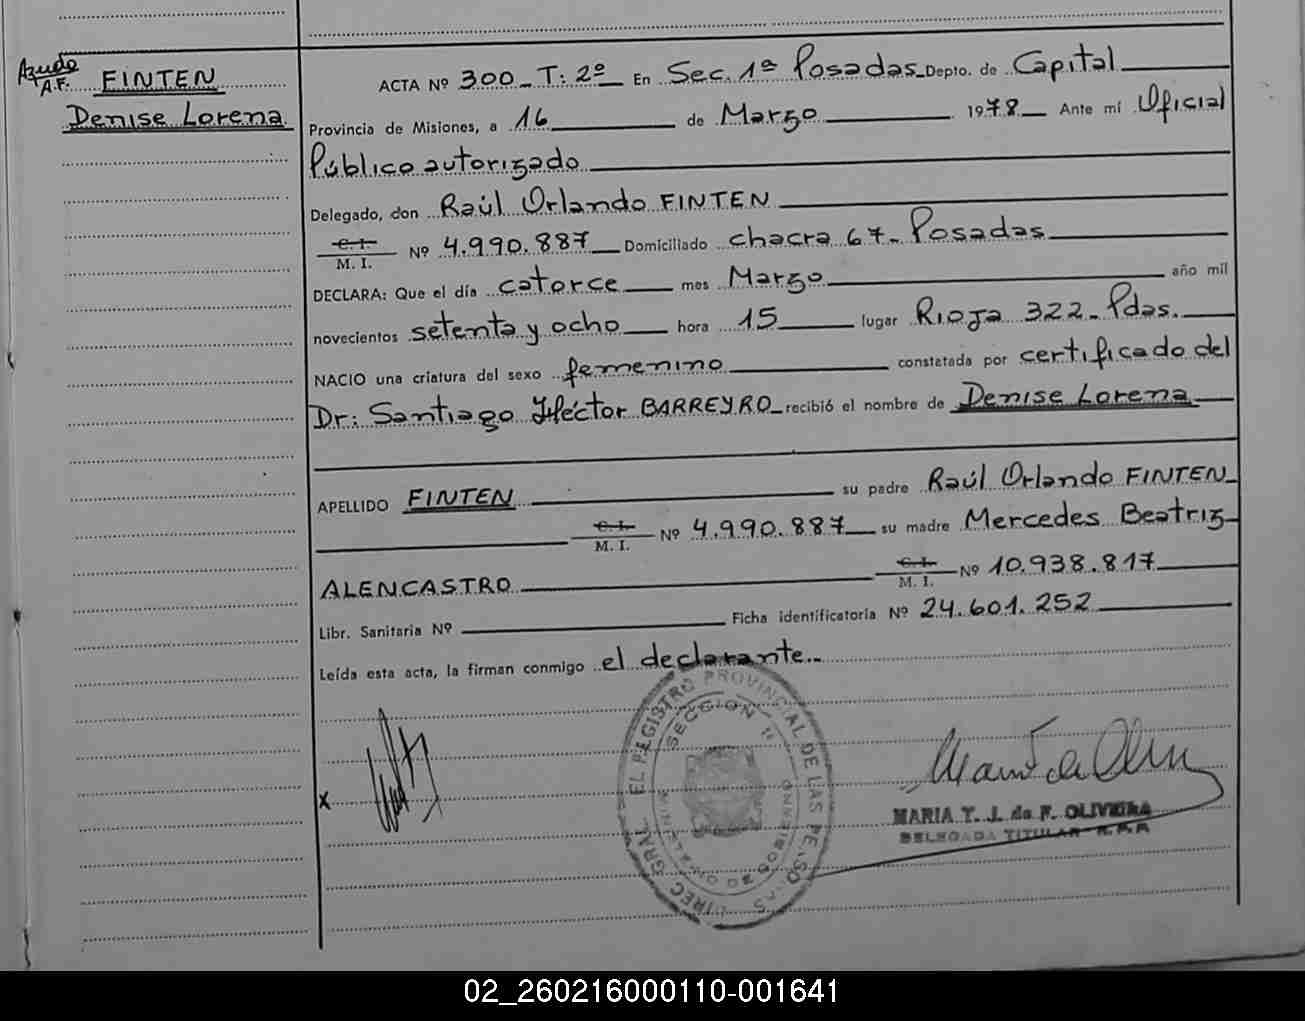 Azudo
A.F.
FINTEN
Denise Lorena
ACTA Nº 300 - T: 2º En Sec. 1ª Posadas Depto. de Capital
Provincia de Misiones, a 16 de Marzo 1978 Ante mí Oficial
Público autorizado
Delegado, don Raúl Orlando FINTEN
C. I.
M. I. Nº 4.990.887 Domiciliado chacra 67 - Posadas
DECLARA: Que el día catorce mes Marzo año mil
novecientos setenta y ocho hora 15 lugar Rioja 322 - Pdas.
NACIO una criatura del sexo femenino constatada por certificado del
Dr: Santiago Héctor BARREYRO recibió el nombre de Denise Lorena
APELLIDO FINTEN su padre Raúl Orlando FINTEN
C. I.
M. I. Nº 4.990.887 su madre Mercedes Beatriz
ALENCASTRO C. I.
M. I. Nº 10.938.817
Libr. Sanitaria Nº Ficha identificatoria Nº 24.601.252
Leída esta acta, la firman conmigo el declarante.
X
DIREC. GRAL. EL REGISTRO PROVINCIAL DE LAS PERSONAS
SECCION 1ª
MARIA T. J. de F. OLIVEIRA
DELEGADA TITULAR R.P.P.
02_260216000110-001641